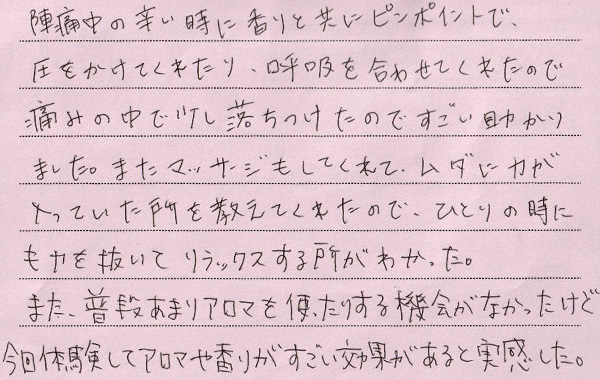 陣痛中の辛い時に香りと共にピンポイントで、
圧をかけてくれたり、呼吸を合わせてくれたので
痛みの中で少し落ちつけたのですごい助かり
ました。またマッサージもしてくれて、ムダに力が
入っていた所を教えてくれたので、ひとりの時に
も力を抜いてリラックスする所がわかった。
また、普段あまりアロマを使ったりする機会がなかったけど
今回体験してアロマや香りがすごい効果があると実感した。